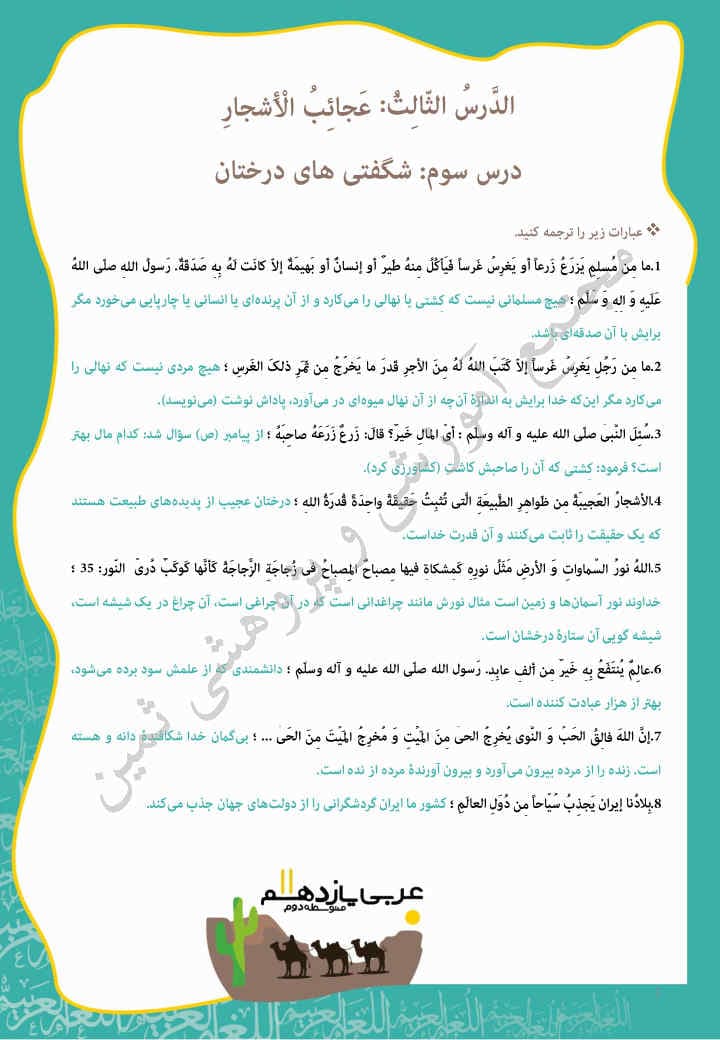 الدَّرسُ الثّالِثُ: عَجائِبُ الْأَشجارِ
درس سوم: شگفتی های درختان
❖ عبارات زیر را ترجمه کنید.
1.ما مِن مُسلِمٍ يَزرَعُ زَرعاً أو يَغرِسُ غَرساً فَيَأكُلُ مِنهُ طَيرٌ أو إنسانٌ أو بَهيمَةٌ إلاّ كانَت لَهُ بِهِ صَدَقَةٌ. رَسولُ اللهِ صلّی اللهُ
عَلَيهِ وَ الِهِ وَ سَلَّم ؛ هیچ مسلمانی نیست که کِشتی یا نهالی را می‌کارد و از آن پرنده‌ای یا انسانی یا چارپایی می‌خورد مگر
برایش با آن صدقه‌ای باشد.
2.ما مِن رَجُلٍ يَغرِسُ غَرساً إلاّ كَتَبَ اللهُ لَهُ مِنَ الأجرِ قَدرَ ما يَخرُجُ مِن ثَمَرِ ذلکَ الغَرسِ ؛ هیچ مردی نیست که نهالی را
می‌کارد مگر این‌که خدا برایش به اندازۀ آن‌چه از آن نهال میوه‌ای در می‌آورد، پاداش نوشت (می‌نویسد).
3.سُئِلَ النَّبيّ صلّی الله علیه و آله وسلّم : أيّ المالِ خَيرٌ؟ قالَ: زَرعٌ زَرَعَهُ صاحِبَهُ ؛ از پیامبر (ص) سؤال شد: کدام مال بهتر
است؟ فرمود: کِشتی که آن را صاحبش کاشت (کشاورزی کرد).
4.الأشجارُ العَجيبَةُ مِن ظَواهِرِ الطَّبيعَةِ الَّتی تُثبِتُ حَقيقَةً واحِدَةً قُدرَةُ اللهِ ؛ درختان عجیب از پدیده‌های طبیعت هستند
که یک حقیقت را ثابت می‌کنند و آن قدرت خداست.
5.اللهُ نورُ السّماواتِ وَ الأرضِ مَثَلُ نورِهِ كَمِشكاةٍ فيها مِصباحٌ المِصباحُ فی زُجاجَةِ الزُّجاجَةُ كَأنَّها كَوكَبٌ دُریّ النّور: 35 ؛
خداوند نور آسمان‌ها و زمین است مثال نورش مانند چراغدانی است که در آن چراغی است، آن چراغ در یک شیشه است،
شیشه گویی آن ستارۀ درخشان است.
6.عالِمٌ يُنتَفَعُ بِهِ خَيرٌ مِن ألفِ عابِدٍ. رَسول الله صلّی الله علیه و آله وسلّم ؛ دانشمندی که از علمش سود برده می‌شود،
بهتر از هزار عبادت کننده است.
7.إنَّ اللهَ فالِقُ الحَبّ وَ النَّوی يُخرِجُ الحیّ مِنَ المَيّتِ وَ مُخرِجُ المَيّتَ مِنَ الحَیّ ... ؛ بی‌گمان خدا شکافندۀ دانه و هسته
است. زنده را از مرده بیرون می‌آورد و بیرون آورندۀ مرده از نده است.
8.بِلادُنا إيران يَجذِبُ سُيّاحاً مِن دُوَلِ العالَمِ ؛ کشور ما ایران گردشگرانی را از دولت‌های جهان جذب می‌کند.
مجتمع آموزشی و پژوهشی ثمین
عربی یازدهم
متوسطه دوم